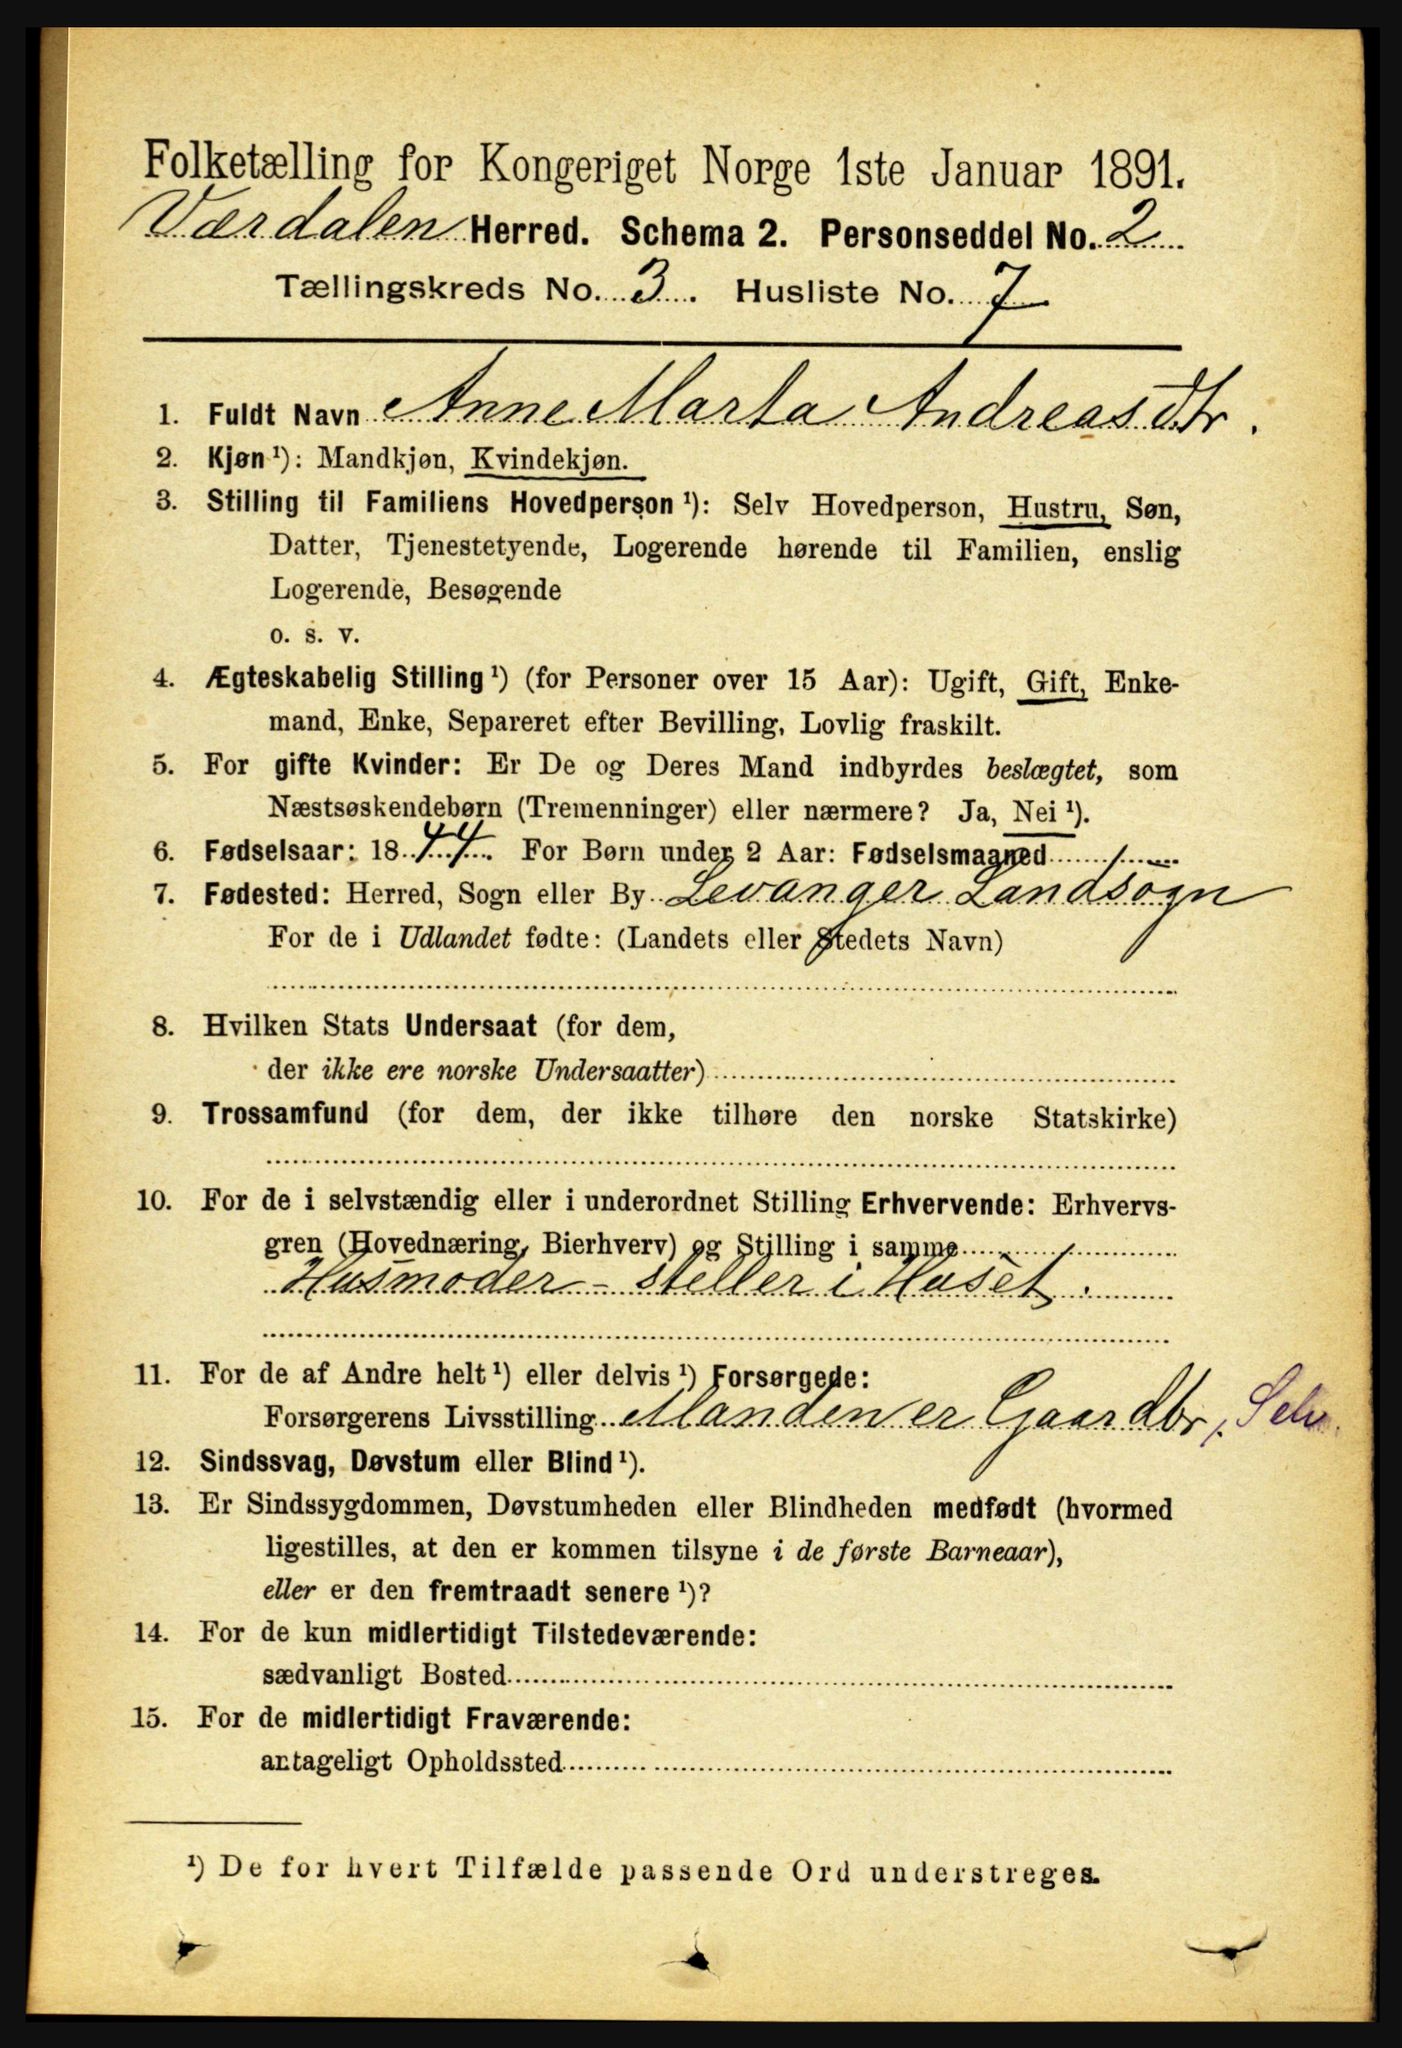 Folketælling for Kongeriget Norge 1ste Januar 1891.
Værdalen Herred. Schema 2. Personseddel No. 2
Tællingskreds No. 3. Husliste No. 7
1. Fuldt Navn Anne Marta Andreasdtr.
2. Kjøn ¹): Mandkjøn, Kvindekjøn.
3. Stilling til Familiens Hovedperson ¹): Selv Hovedperson, Hustru, Søn,
Datter, Tjenestetyende, Logerende hørende til Familien, enslig
Logerende, Besøgende
o. s. v.
4. Ægteskabelig Stilling ¹) (for Personer over 15 Aar): Ugift, Gift, Enke-
mand, Enke, Separeret efter Bevilling, Lovlig fraskilt.
5. For gifte Kvinder: Er De og Deres Mand indbyrdes beslægtet, som
Næstsøskendebørn (Tremenninger) eller nærmere? Ja, Nei ¹).
6. Fødselsaar: 1844. For Børn under 2 Aar: Fødselsmaaned
7. Fødested: Herred, Sogn eller By Levanger Landsogn
For de i Udlandet fødte: (Landets eller Stedets Navn)
8. Hvilken Stats Undersaat (for dem,
der ikke ere norske Undersaatter)
9. Trossamfund (for dem, der ikke tilhøre den norske Statskirke)
10. For de i selvstændig eller i underordnet Stilling Erhvervende: Erhvervs-
gren (Hovednæring, Bierhverv) og Stilling i samme
Husmoder - steller i Huset.
11. For de af Andre helt ¹) eller delvis ¹) Forsørgede:
Forsørgerens Livsstilling Manden er Gaardbr, Selv.
12. Sindssvag, Døvstum eller Blind ¹).
13. Er Sindssygdommen, Døvstumheden eller Blindheden medfødt (hvormed
ligestilles, at den er kommen tilsyne i de første Barneaar),
eller er den fremtraadt senere ¹)?
14. For de kun midlertidigt Tilstedeværende:
sædvanligt Bosted
15. For de midlertidigt Fraværende:
antageligt Opholdssted
¹) De for hvert Tilfælde passende Ord understreges.